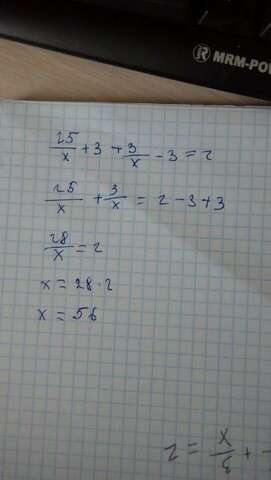 MRM-POW
25/x + 3 + 3/x - 3 = 2
25/x + 3/x = 2 - 3 + 3
28/x = 2
x = 28 · 2
x = 56
2 = x/3 +